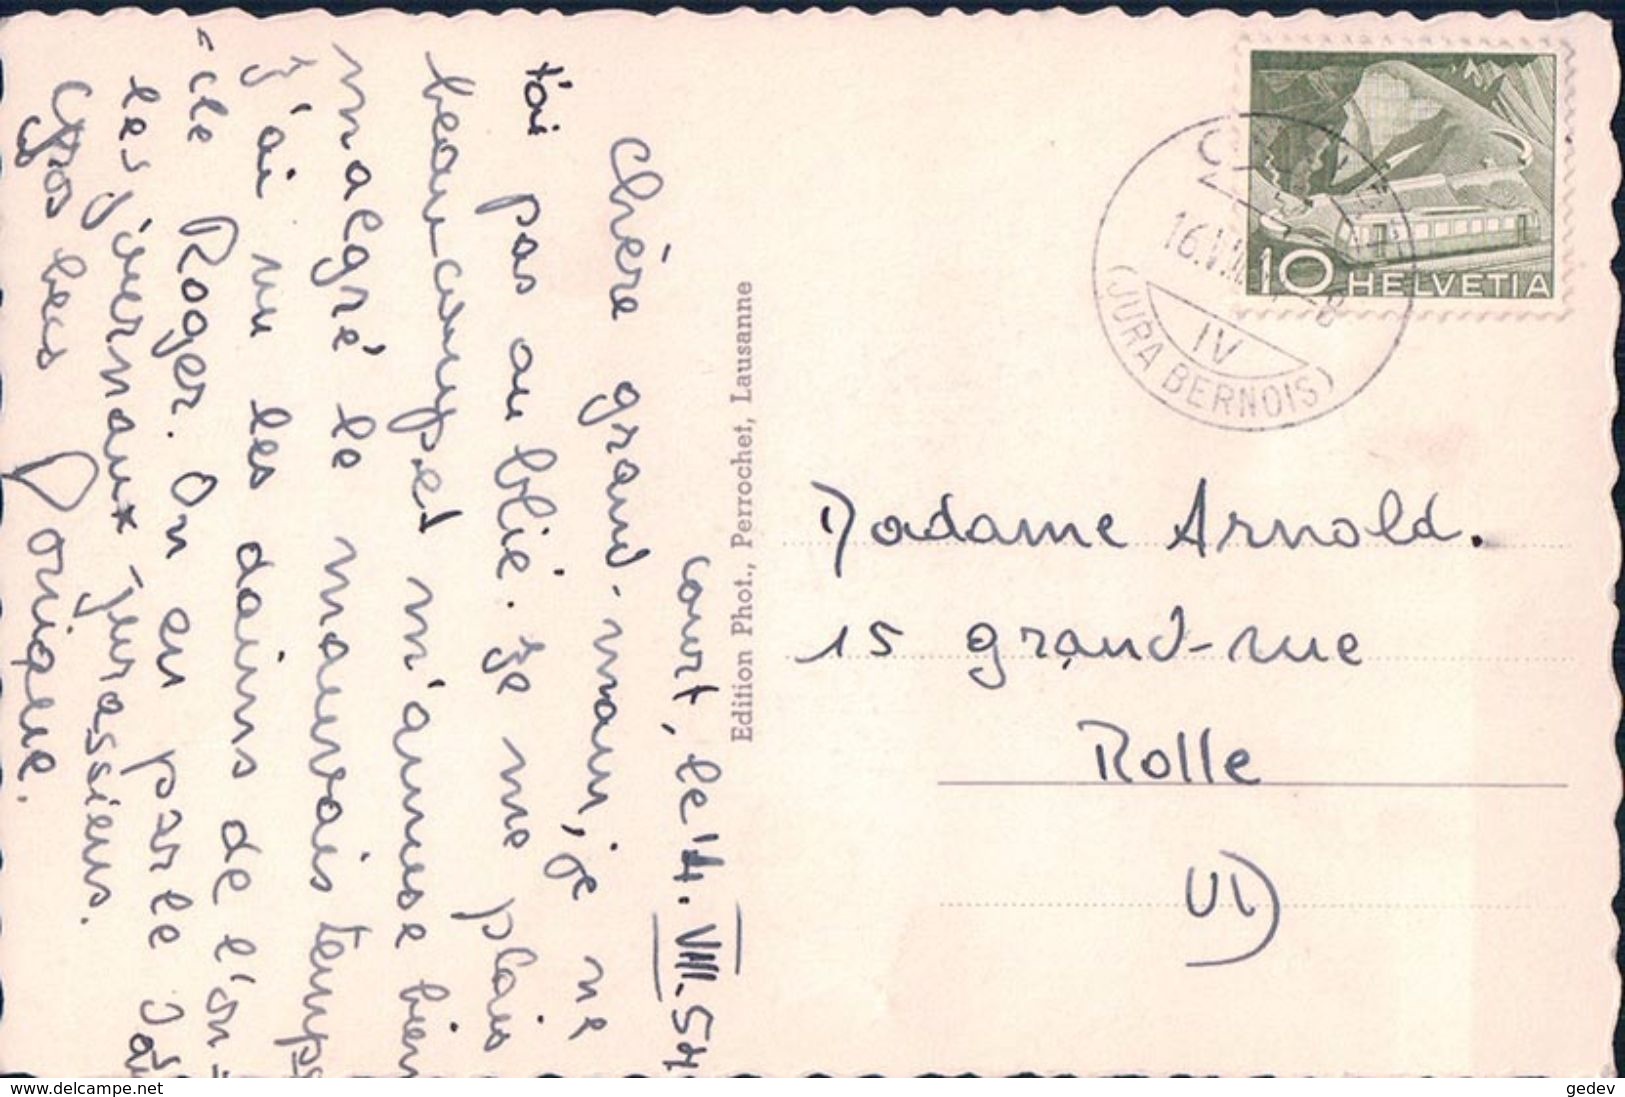 Court, le 14. VIII. 54
Chère grand-maman, je ne
t'ai pas oublié. Je me plais
beaucoup et m'amuse bien
malgré le mauvais temps
J'ai vu les daims de l'on=
=cle Roger. On en parle
les jivernaux* jurassiens.
Gros becs
Edition Phot., Perrochet, Lausanne
10 HELVETIA
16.VIII. -8
IV
(JURA BERNOIS)
Madame Arnold.
15 grand-rue
Rolle
VD
www.delcampe.net
gedev